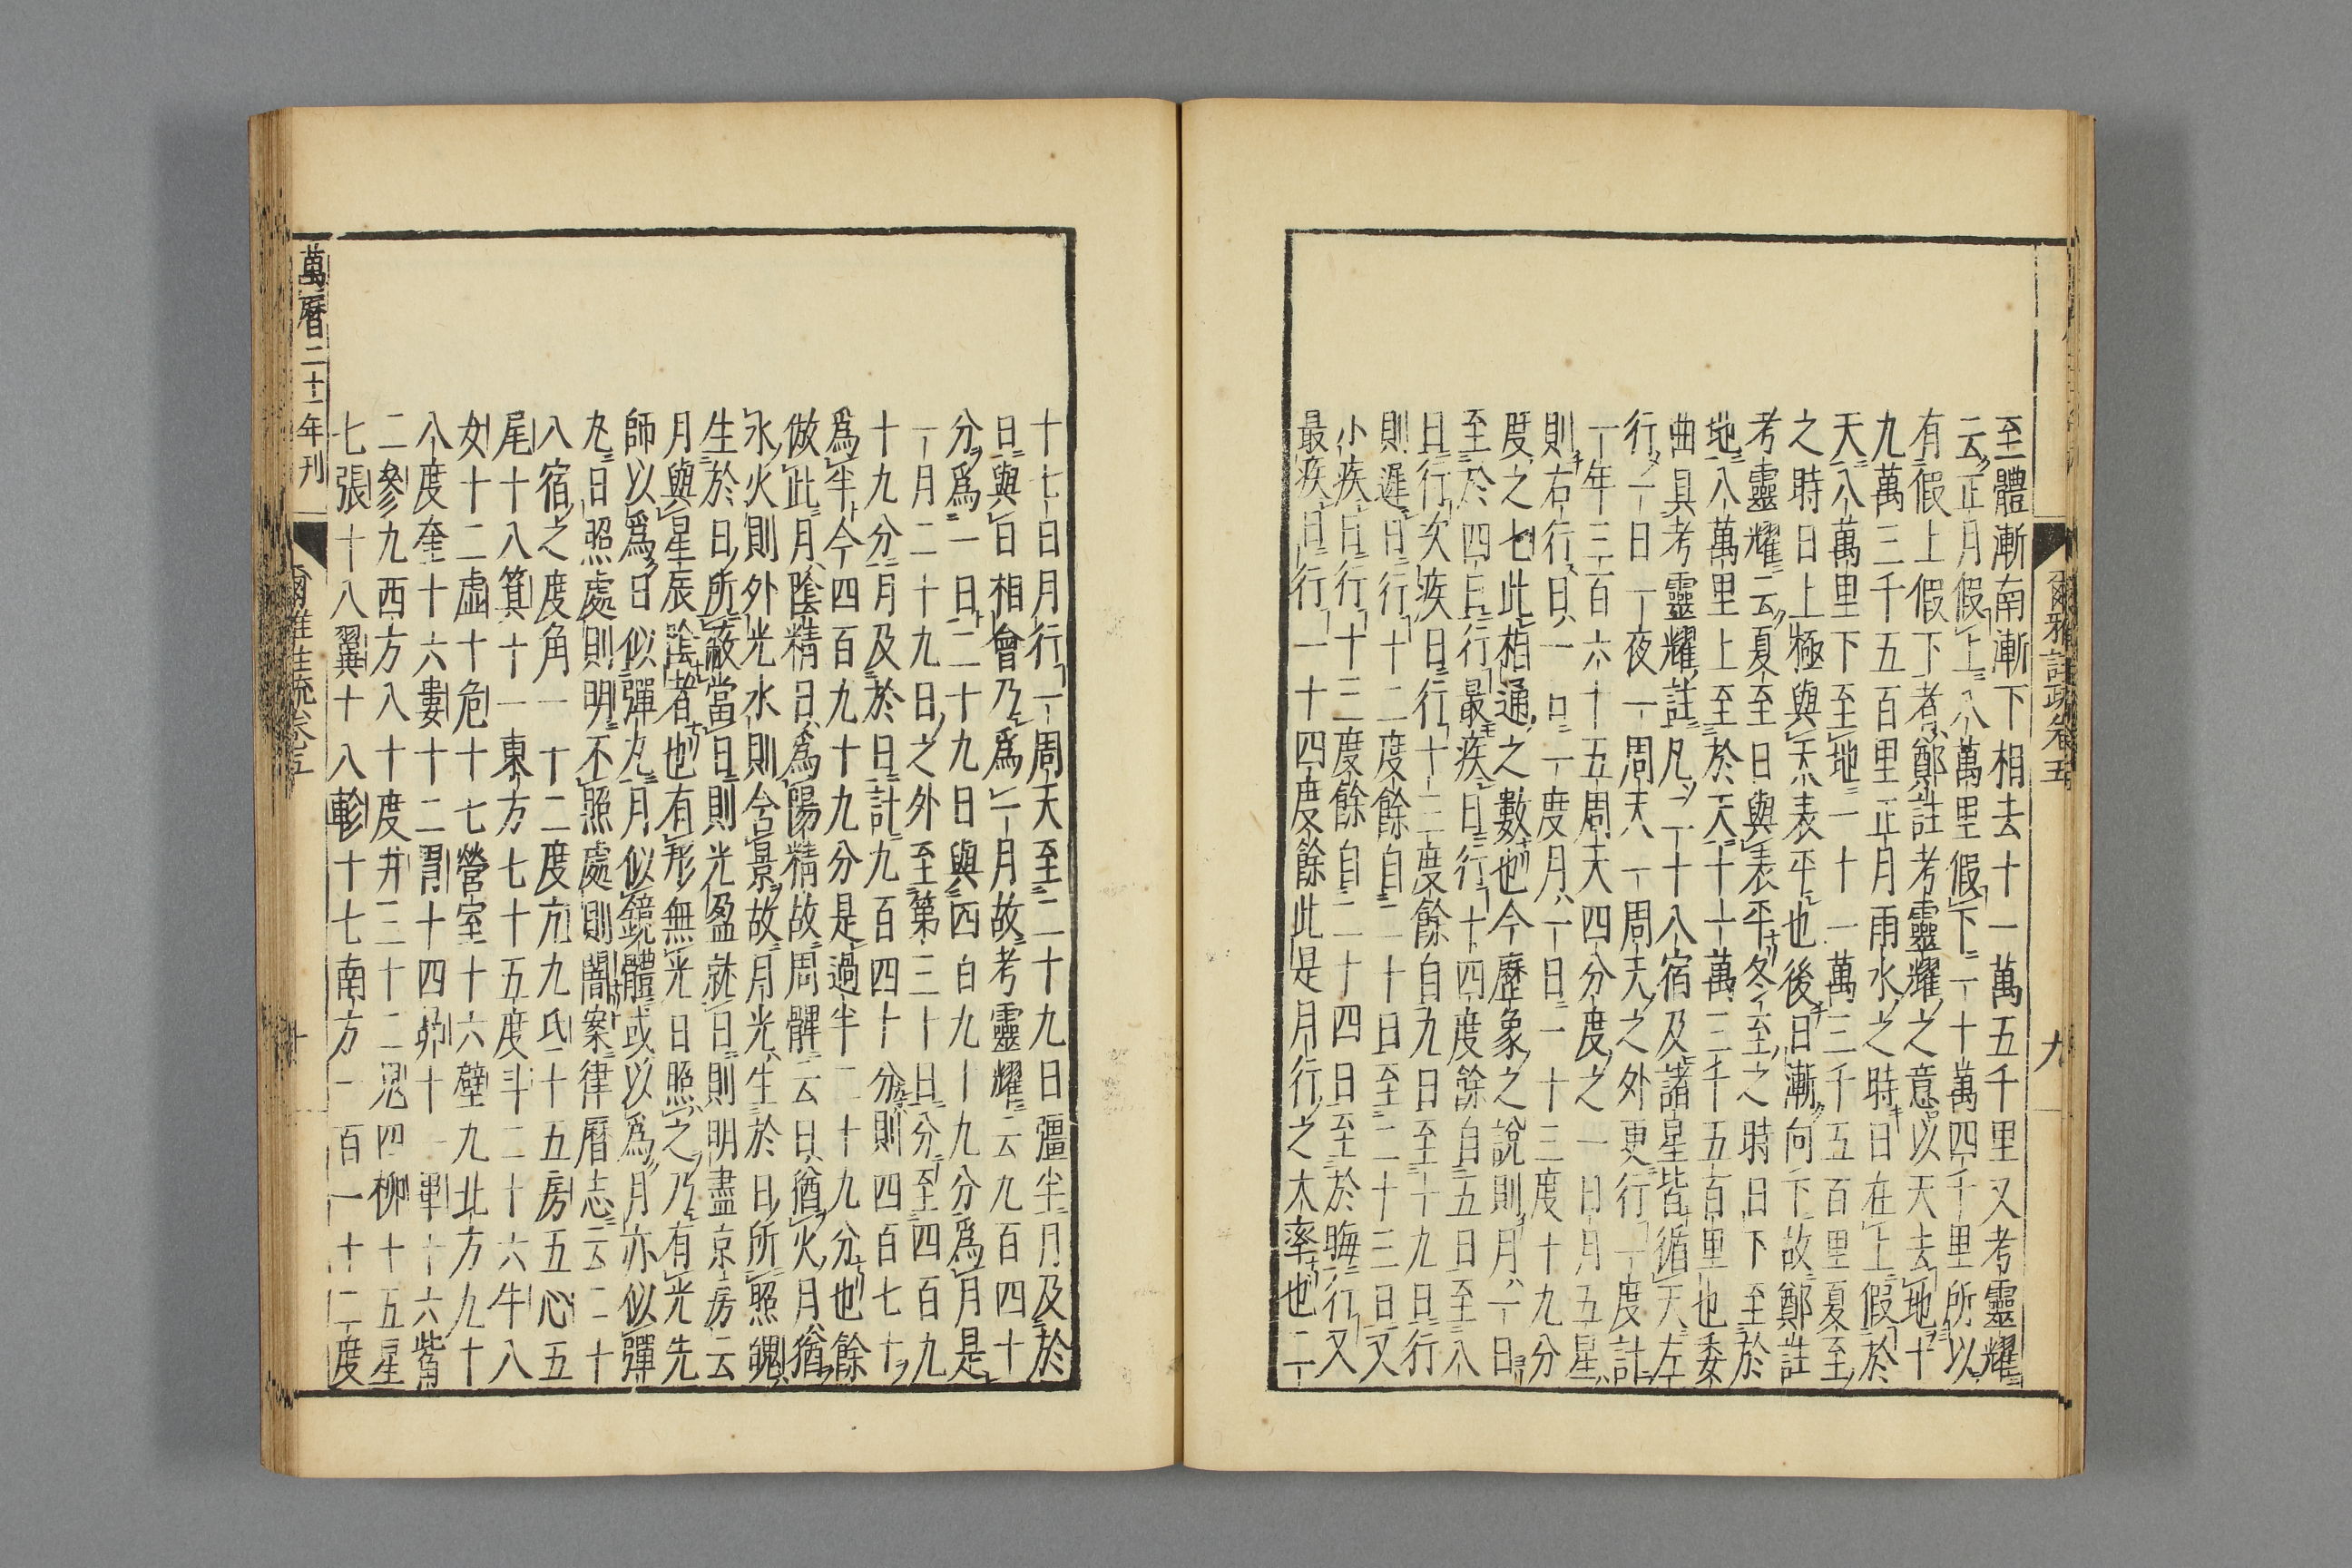 爾雅註疏卷五
九
至體漸南漸下相去十一萬五千里又考靈耀
云正月假上八萬里假下一十萬四千里所以
有假上假下者鄭註考靈耀之意以天去地十
九萬三千五百里正月雨水之時日在上假於
天八萬里下至地一十一萬三千五百里夏至
之時日上極與天表平也後日漸向下故鄭註
考靈耀云夏至日與表平冬至之時日下至於
地八萬里上至於天十一萬三千五百里也委
曲具考靈耀註凡二十八宿及諸星皆循天左
行一日一夜一周天一周天之外更行一度計
一年三百六十五周天四分度之一日月五星
則右行日一日一度月一日一十三度十九分
度之七此相通之數也今歷象之說則月一日
至於四日行最疾日行十四度餘自五日至八
日行次疾日行十三度餘自九日至十九日行
則遲日行十二度餘自二十日至二十三日又
小疾日行十三度餘自二十四日至於晦行又
最疾日行一十四度餘此是月行之大率也二
十七日月行一周天至二十九日彊半月及於
日與日相會乃爲一月故考靈耀云九百四十
分爲一日二十九日與四百九十九分爲月是
一月二十九日之外至第三十日分至四百九
十九分月及於日計九百四十分則四百七十
爲半今四百九十九分是過半二十九分也餘
倣此月陰精日爲陽精故周髀云日猶火月猶
水火則外光水則含景故月光生於日所照魄
生於日所蔽當日則光盈就日則明盡京房云
月與星辰陰者也有形無光日照之乃有光先
師以爲日似彈丸月似鏡體或以爲月亦似彈
丸日照處則明不照處則闇案律曆志云二十
八宿之度角一十二度亢九氐十五房五心五
尾十八箕十一東方七十五度斗二十六牛八
女十二虛十危十七營室十六壁九北方九十
八度奎十六婁十二胃十四昴十一畢十六觜
二參九西方八十度井三十二鬼四柳十五星
七張十八翼十八軫十七南方一百一十二度
萬曆二十一年刊
爾雅註疏卷五
十